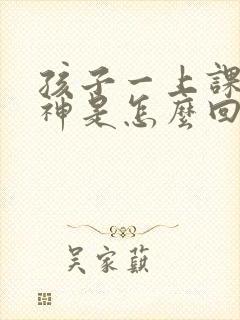 孩子一上課
神是怎麼回
吳家蘇